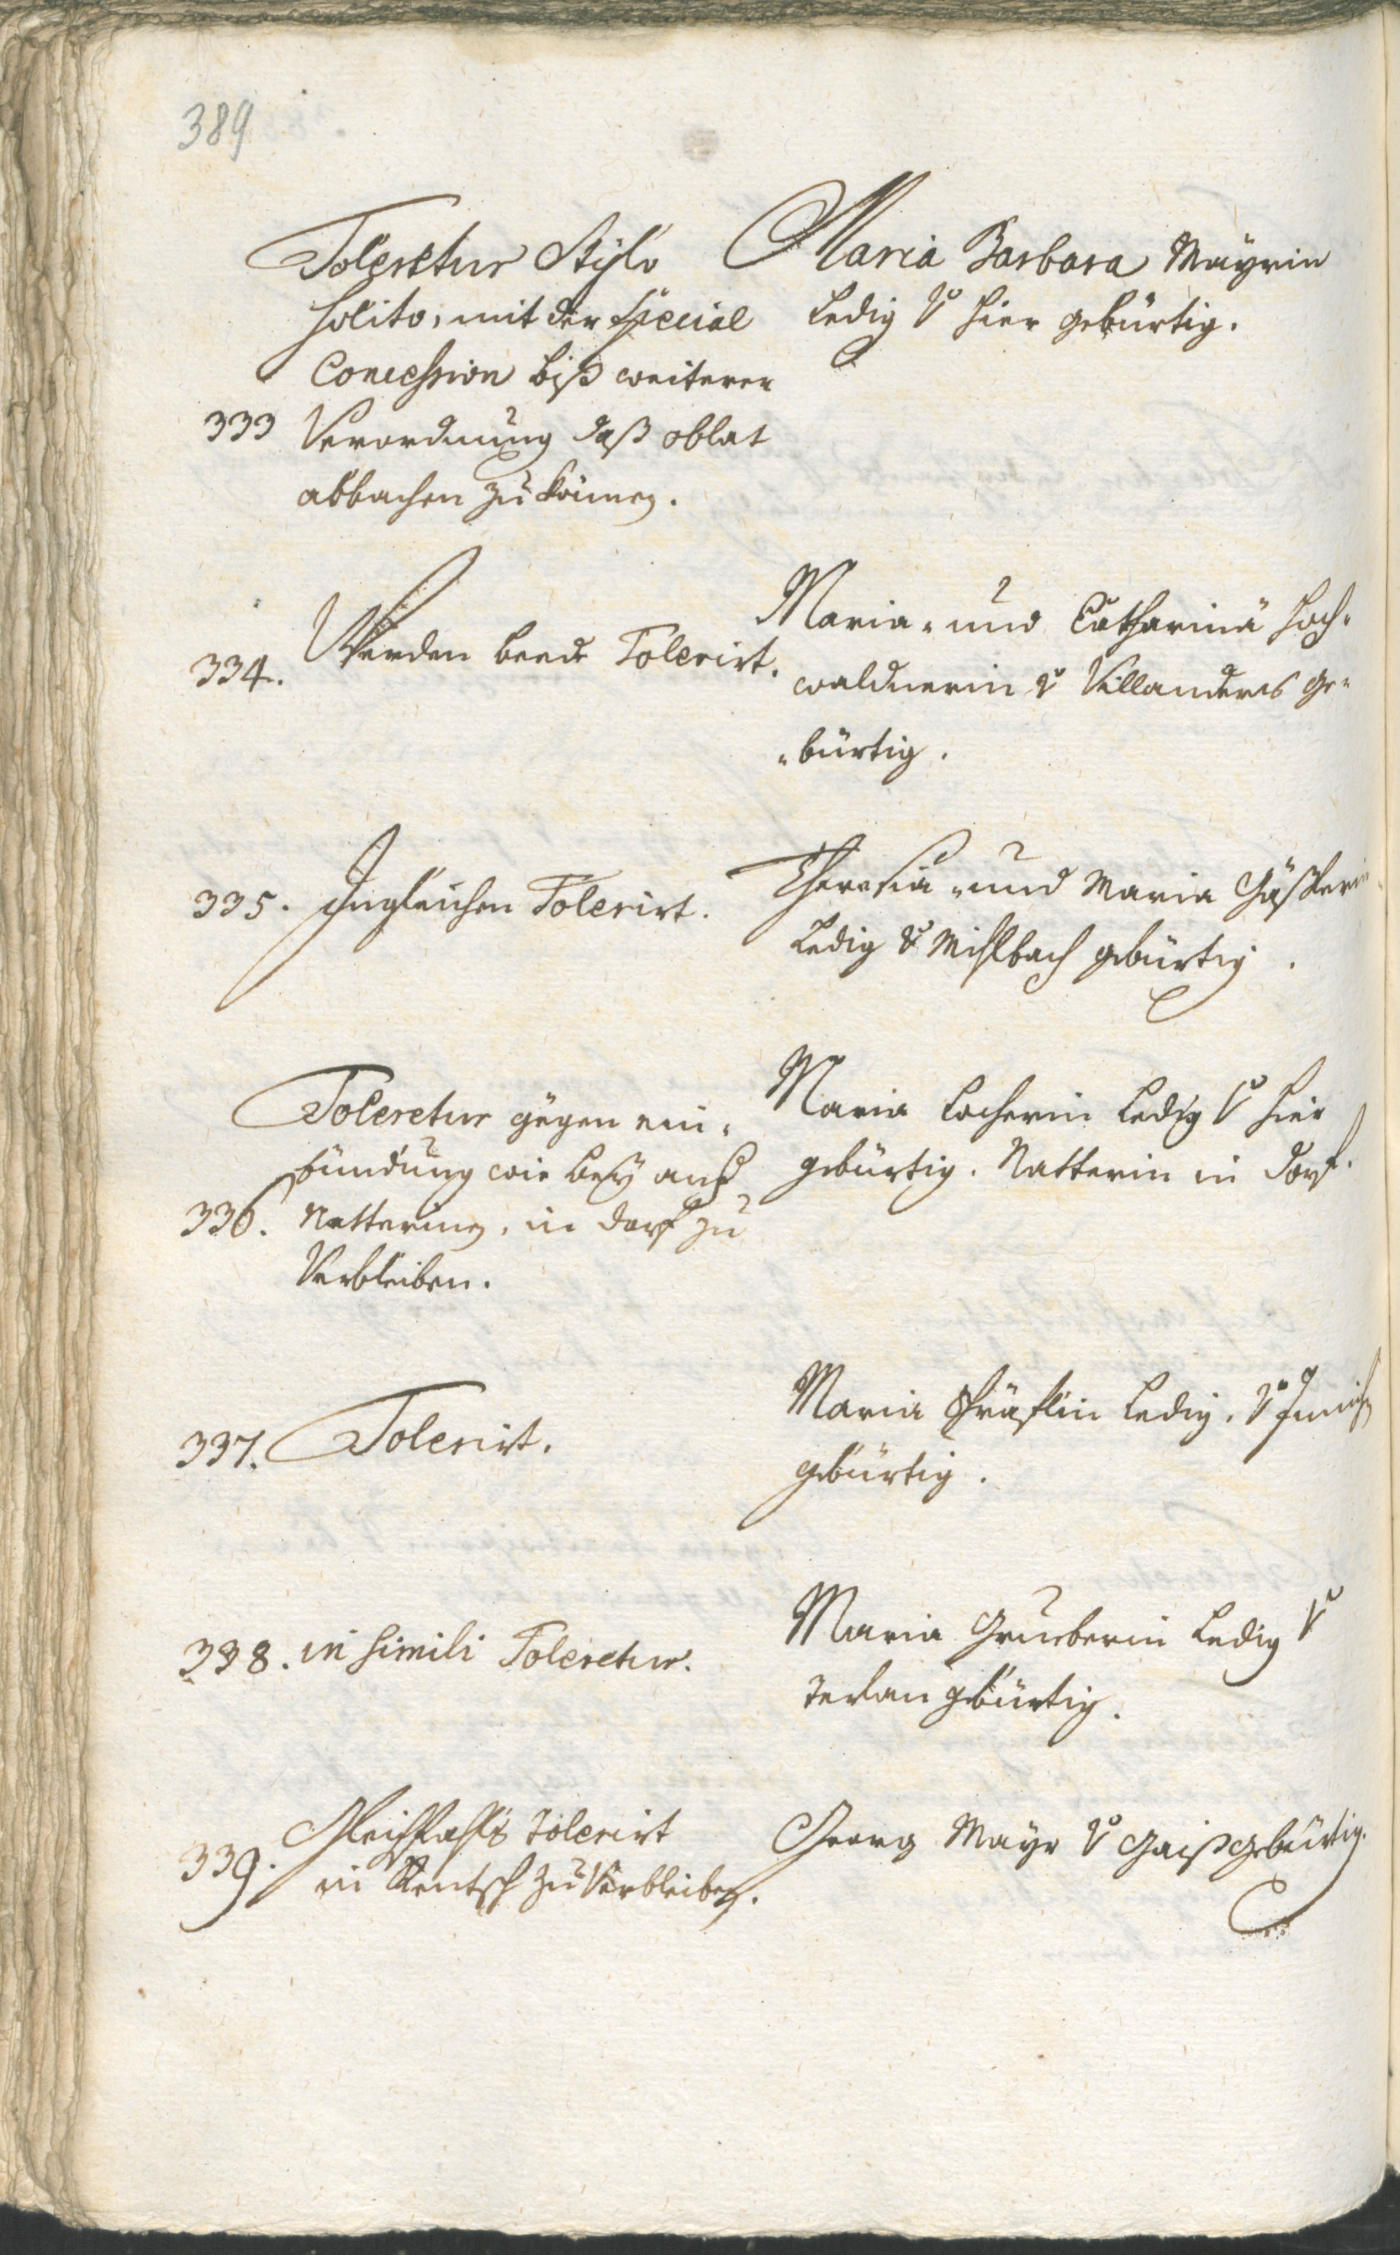 389
Toleretur Stÿlo
solito, mit der special
Concession biß weiterer
333 Verordnung daß oblat
abbachen zu können.
Maria Barbara Maÿrin
Ledig v hier gebürtig.
334. Werden beede Tolerirt.
Maria- und Catharina Hoch-
waldnerin v Villanders ge-
-bürtig.
335. Ingleichen Tolerirt.
Theresia- und Maria
Ledig v Mihlbach gebürtig.
Toleretur gegen ein-
bündung wie beÿ and
336. Natterin, in dorf zu
Verbleiben.
Maria Locherin Ledig v hier
gebürtig. Natterin in dorf.
337. Tolerirt.
Maria Ledig. v Innich
gebürtig.
338. in simili Toleretur.
Maria Gruberin Ledig v
Terlan gebürtig.
339. Gleichfahls tolerirt
in Rentsch zu Verbleiben.
Georg Maÿr v Gaiß gebürtig.